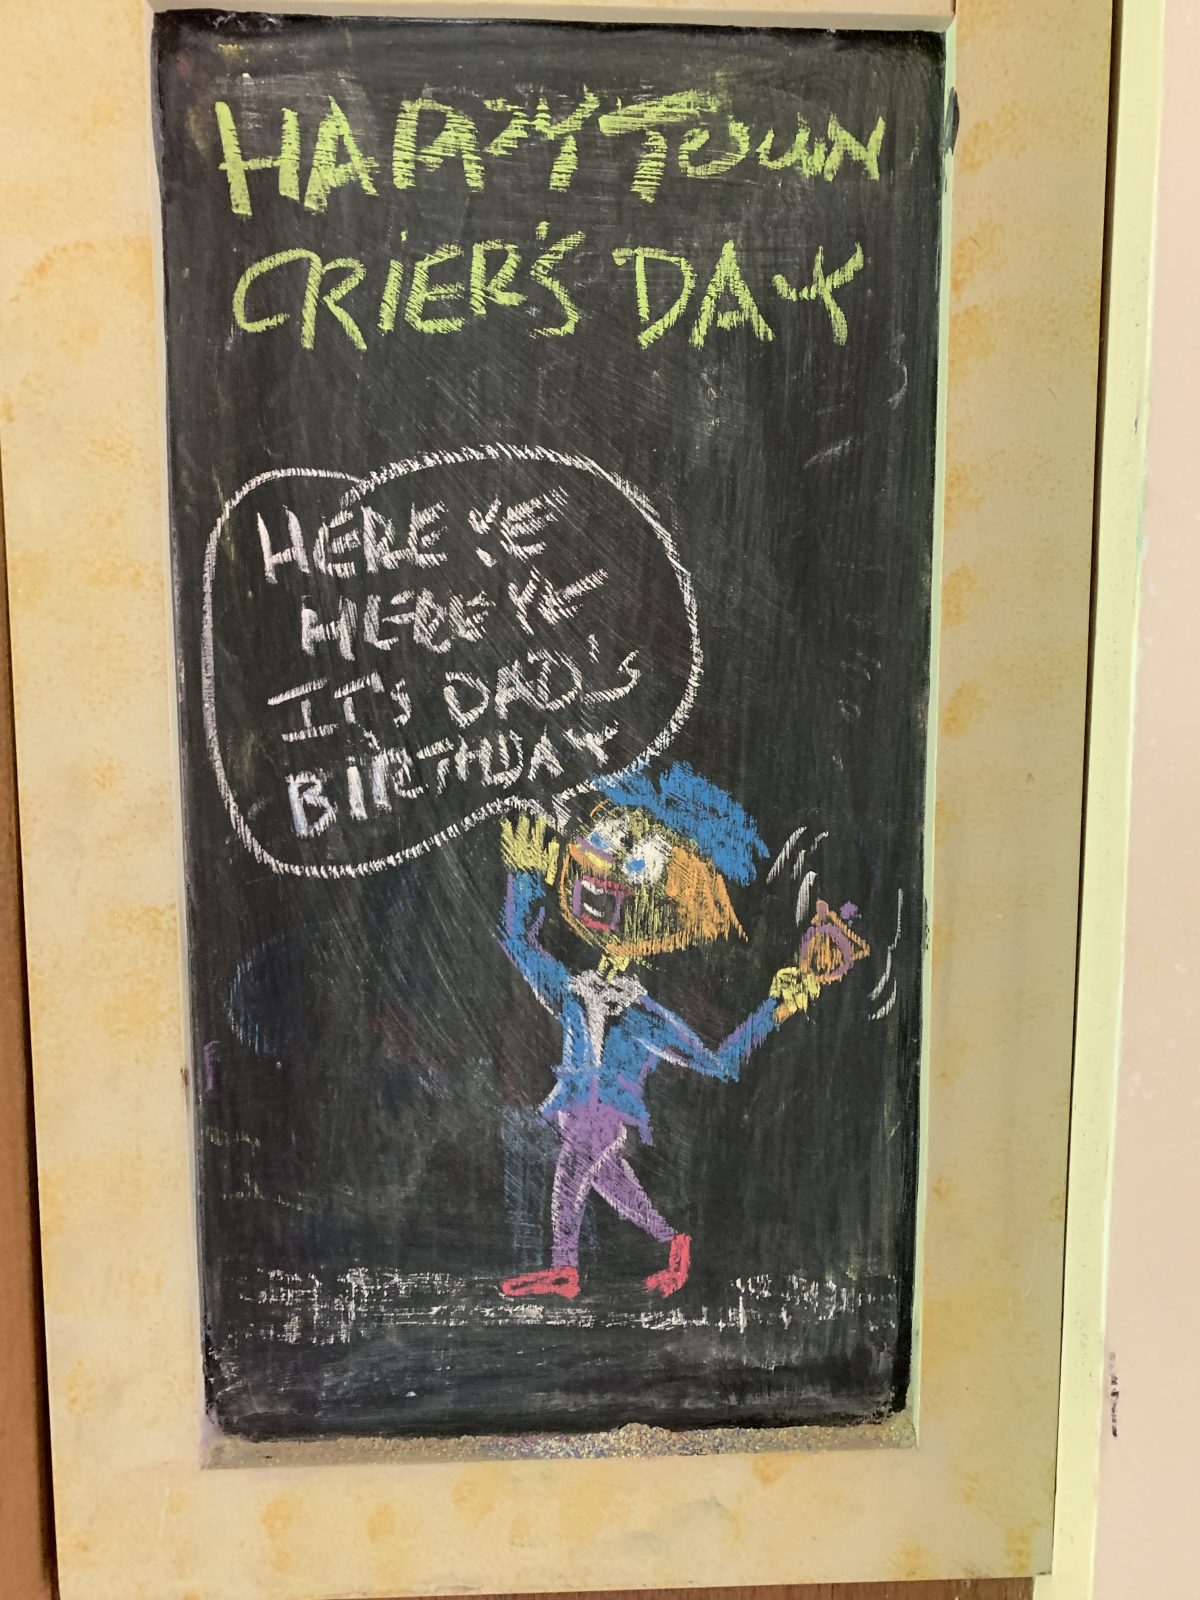 HAPPY TOWN
CRIER'S DAY
HERE YE
HERE YE
IT'S DAD'S
BIRTHDAY